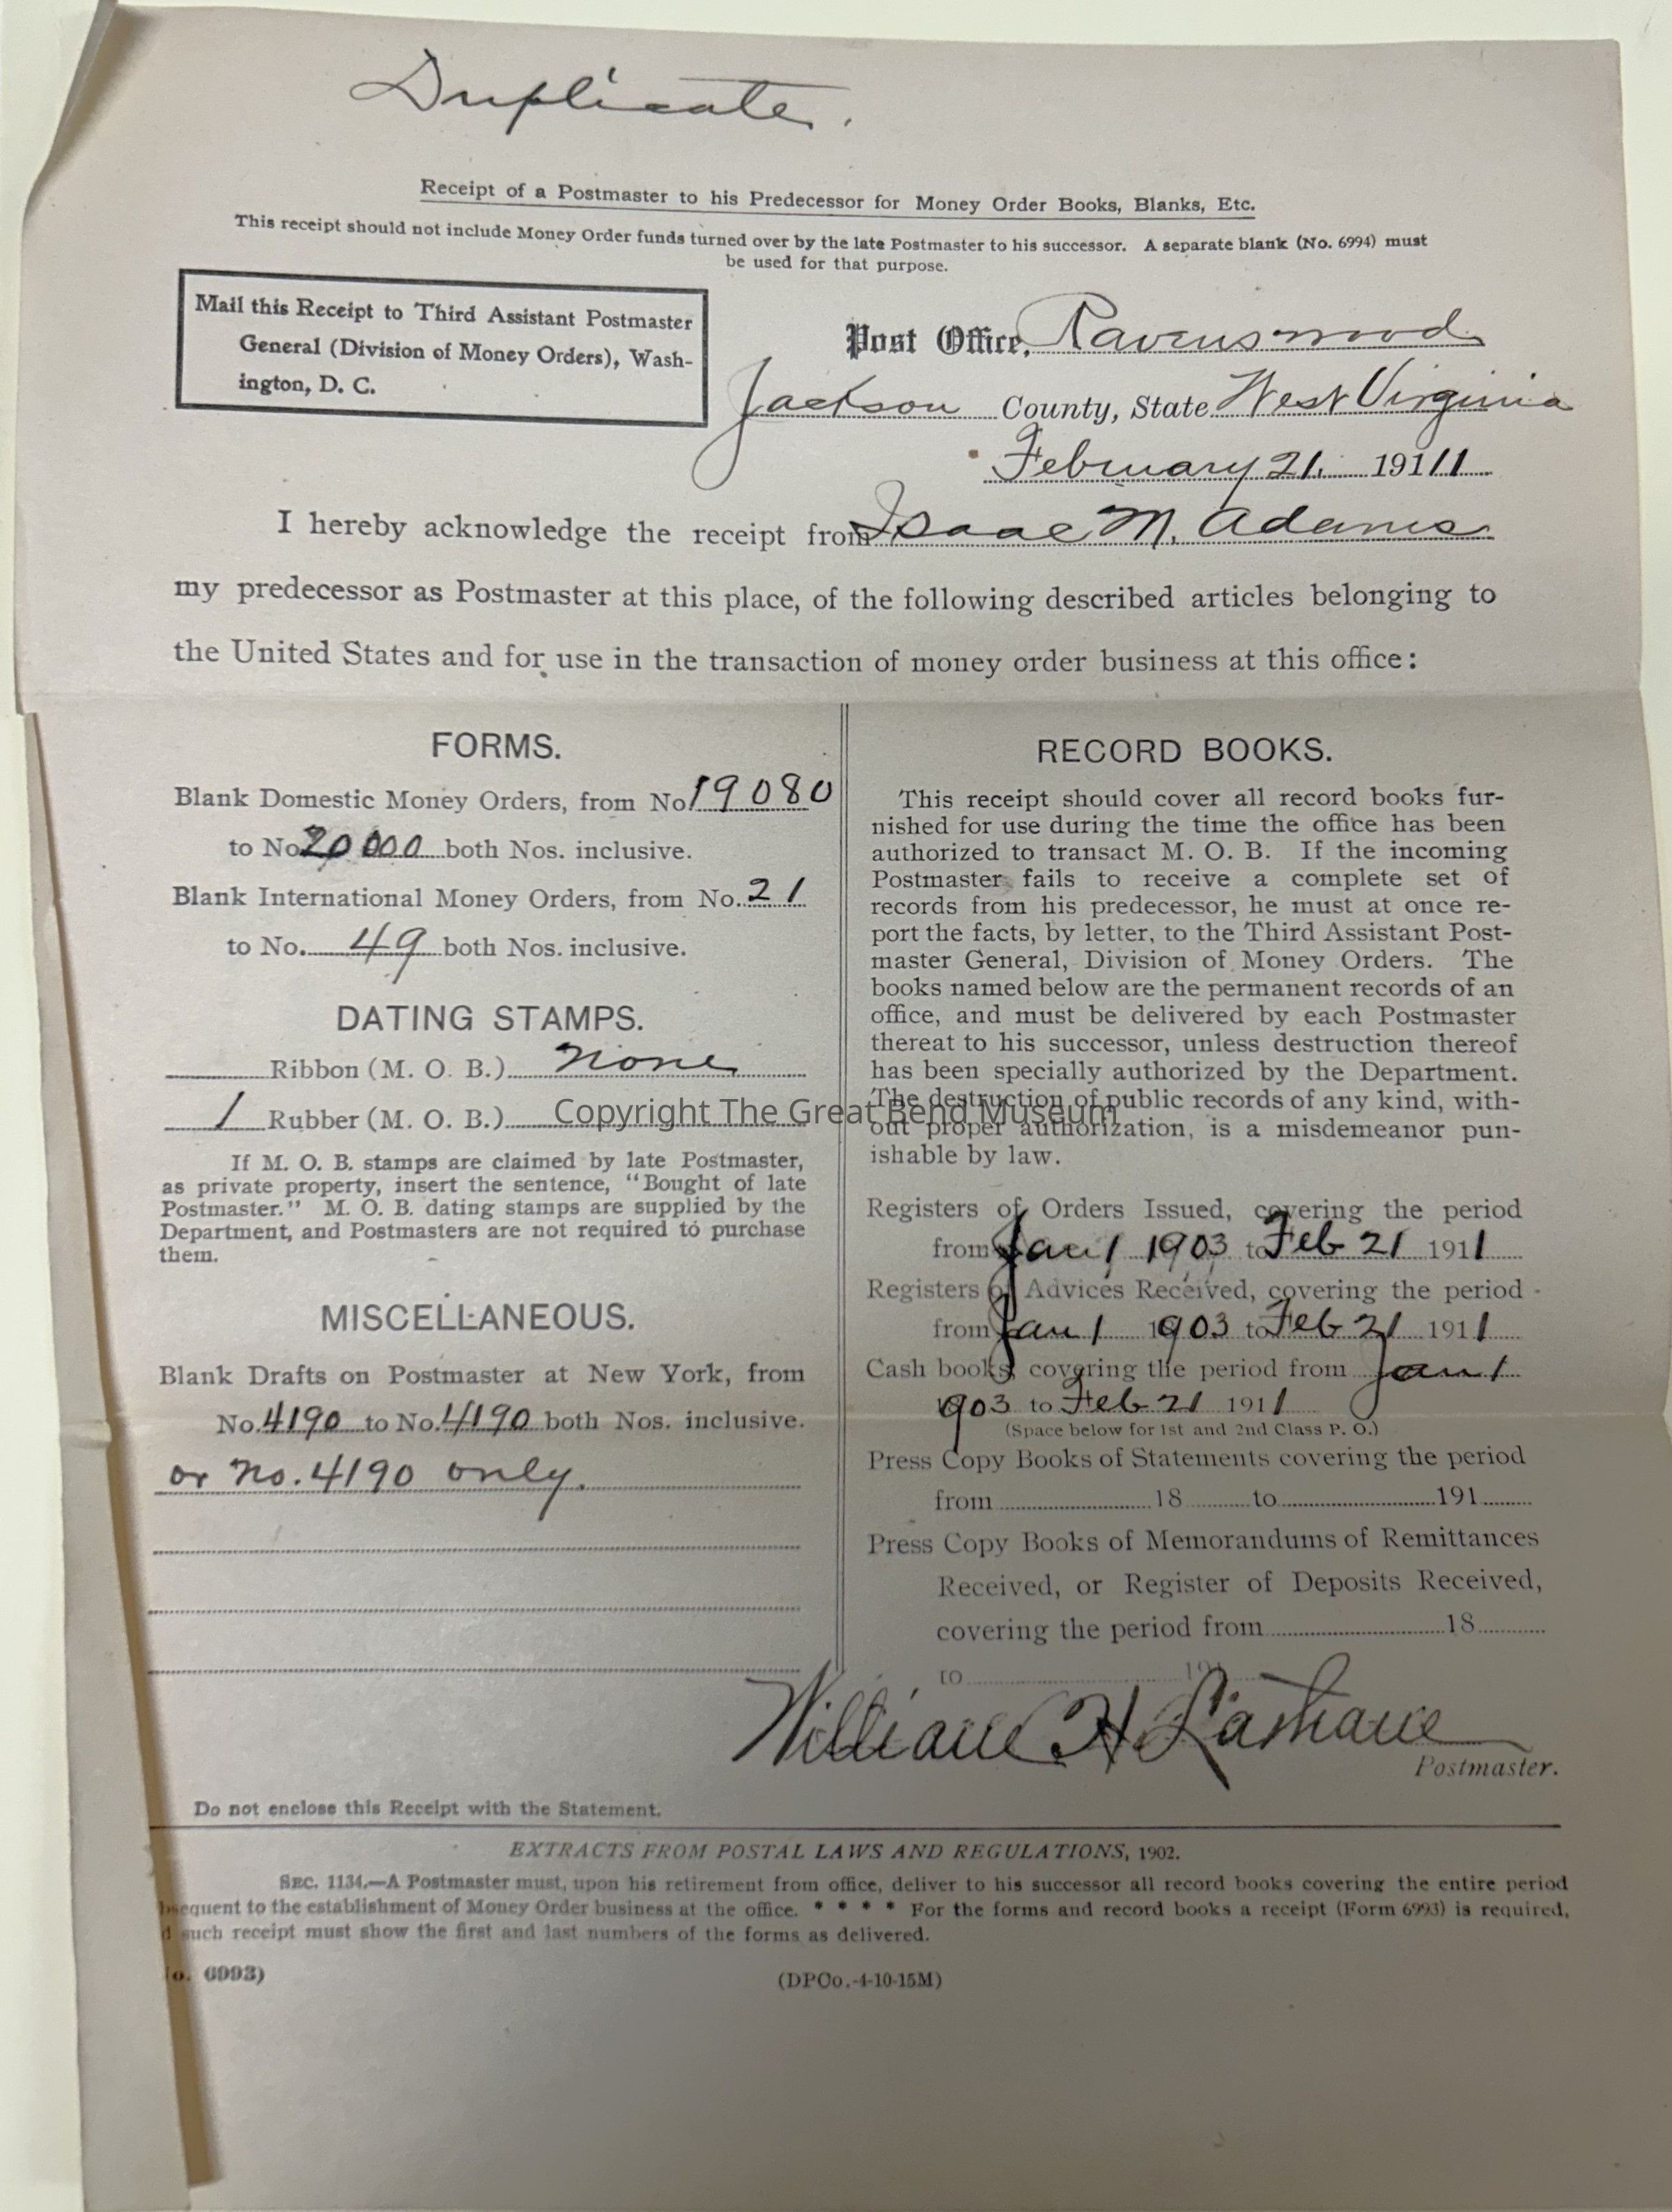 Duplicate.
Receipt of a Postmaster to his Predecessor for Money Order Books, Blanks, Etc.
This receipt should not include Money Order funds turned over by the late Postmaster to his successor. A separate blank (No. 6994) must
be used for that purpose.
Mail this Receipt to Third Assistant Postmaster
General (Division of Money Orders), Wash-
ington, D. C.
Post Office, Ravenswood
Jackson County, State West Virginia
February 21. 191 11
I hereby acknowledge the receipt from Isaac M. Adams
my predecessor as Postmaster at this place, of the following described articles belonging to
the United States and for use in the transaction of money order business at this office:
FORMS.
Blank Domestic Money Orders, from No 19080
to No 20000 both Nos. inclusive.
Blank International Money Orders, from No. 21
to No. 49 both Nos. inclusive.
DATING STAMPS.
Ribbon (M. O. B.) none
1 Rubber (M. O. B.)
If M. O. B. stamps are claimed by late Postmaster,
as private property, insert the sentence, "Bought of late
Postmaster." M. O. B. dating stamps are supplied by the
Department, and Postmasters are not required to purchase
them.
MISCELLANEOUS.
Blank Drafts on Postmaster at New York, from
No. 4190 to No. 4190 both Nos. inclusive.
or no. 4190 only.
RECORD BOOKS.
This receipt should cover all record books fur-
nished for use during the time the office has been
authorized to transact M. O. B. If the incoming
Postmaster fails to receive a complete set of
records from his predecessor, he must at once re-
port the facts, by letter, to the Third Assistant Post-
master General, Division of Money Orders. The
books named below are the permanent records of an
office, and must be delivered by each Postmaster
thereat to his successor, unless destruction thereof
has been specially authorized by the Department.
The destruction of public records of any kind, with-
out proper authorization, is a misdemeanor pun-
ishable by law.
Registers of Orders Issued, covering the period
from Jan 1 1903 to Feb 21 1911
Registers of Advices Received, covering the period
from Jan 1 1903 to Feb 21 1911
Cash books, covering the period from Jan 1
1903 to Feb 21 1911
(Space below for 1st and 2nd Class P. O.)
Press Copy Books of Statements covering the period
from 18 to 191
Press Copy Books of Memorandums of Remittances
Received, or Register of Deposits Received,
covering the period from 18
to 191
William H
Postmaster.
Copyright The Great Bend Museum
Do not enclose this Receipt with the Statement.
EXTRACTS FROM POSTAL LAWS AND REGULATIONS, 1902.
SEC. 1134.—A Postmaster must, upon his retirement from office, deliver to his successor all record books covering the entire period
bsequent to the establishment of Money Order business at the office. * * * * For the forms and record books a receipt (Form 6993) is required,
d such receipt must show the first and last numbers of the forms as delivered.
o. 6993)
(DPCo.-4-10-15M)